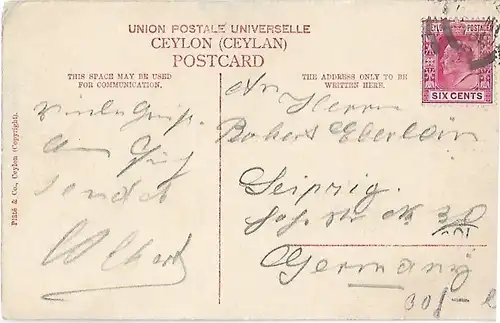 UNION POSTALE UNIVERSELLE
CEYLON (CEYLAN)
POSTCARD
THIS SPACE MAY BE USED
FOR COMMUNICATION.
THE ADDRESS ONLY TO BE
WRITTEN HERE.
CEYLON POSTAGE
SIX CENTS
Plâté & Co., Ceylon (Copyright).
sendet
Albert
An Herrn
Robert Eberlein
Leipzig.
Germany